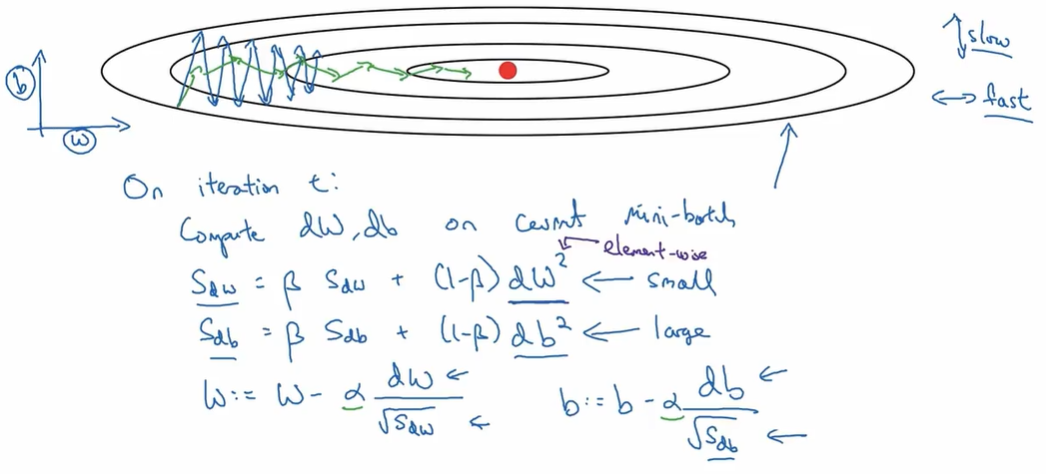 b
w
slow
fast
On iteration t:
Compute dW, db on current mini-batch
element-wise
S_dw = β S_dw + (1-β) dW² ← small
S_db = β S_db + (1-β) db² ← large
W := W - α dW/√S_dw b := b - α db/√S_db